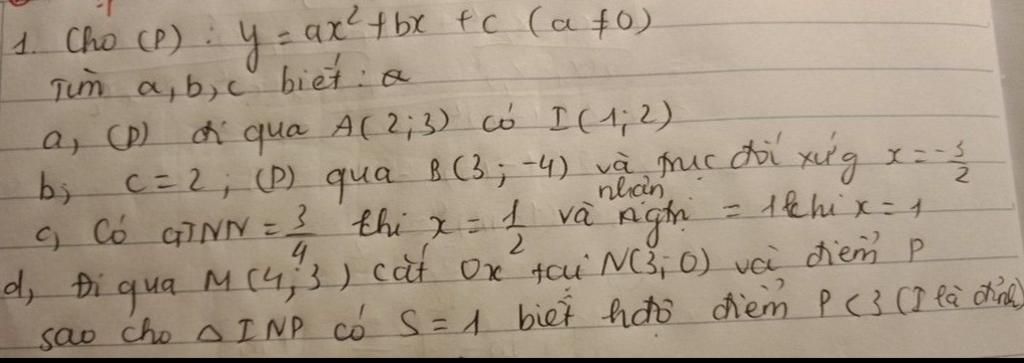 1. Cho (P) : y = ax² + bx + c (a ≠ 0)
Tìm a, b, c biết : a
a, (P) đi qua A(2;3) có I(1;2)
b, c = 2 ; (P) qua B(3; -4) và trục đối xứng x = -3/2
c, Có GTNN = 3/4 khi x = 1/2 và nhận = 1 khi x = 1
d, Đi qua M(4;3) cắt Ox tại N(3;0) và điểm P
sao cho △INP có S = 1 biết hđộ điểm P < 3 (I là đỉnh)